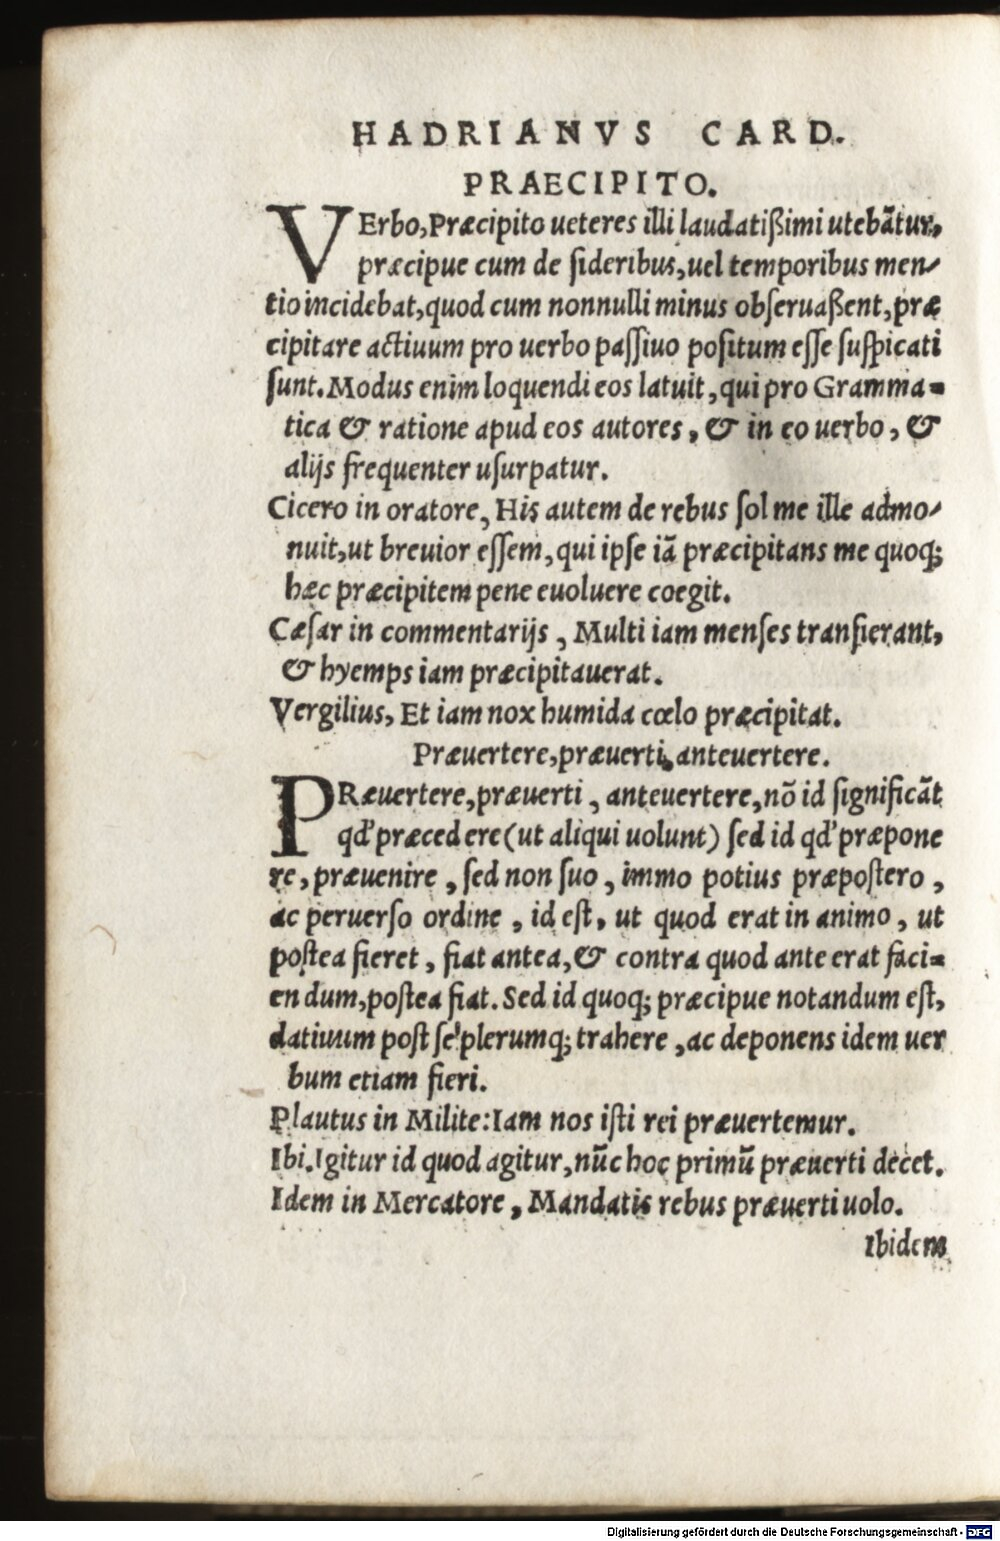 HADRIANVS CARD.
PRAECIPITO.
VErbo, Præcipito ueteres illi laudatißimi utebãtur,
præcipue cum de ſideribus, uel temporibus men-
tio incidebat, quod cum nonnulli minus obſeruaßent, præ
cipitare actiuum pro uerbo paſſiuo poſitum eſſe ſuſpicati
ſunt. Modus enim loquendi eos latuit, qui pro Gramma=
tica & ratione apud eos autores, & in eo uerbo, &
alijs frequenter uſurpatur.
Cicero in oratore, His autem de rebus ſol me ille admo-
nuit, ut breuior eſſem, qui ipſe iã præcipitans me quoq;
hæc præcipitem pene euoluere coegit.
Cæſar in commentarijs, Multi iam menſes tranſierant,
& hyemps iam præcipitauerat.
Vergilius, Et iam nox humida cœlo præcipitat.
Præuertere, præuerti, anteuertere.
PRæuertere, præuerti, anteuertere, nõ id ſignificãt
qd' præcedere (ut aliqui uolunt) ſed id qd' præpone
re, præuenire, ſed non ſuo, immo potius præpoſtero,
ac peruerſo ordine, id eſt, ut quod erat in animo, ut
poſtea fieret, fiat antea, & contra quod ante erat faci=
endum, poſtea fiat. Sed id quoq; præcipue notandum eſt,
datiuum poſt ſe plerumq; trahere, ac deponens idem uer
bum etiam fieri.
Plautus in Milite: Iam nos iſti rei præuertemur.
Ibi. Igitur id quod agitur, nũc hoc primũ præuerti decet.
Idem in Mercatore, Mandatis rebus præuerti uolo.
Ibidem
Digitalisierung gefördert durch die Deutsche Forschungsgemeinschaft - DFG